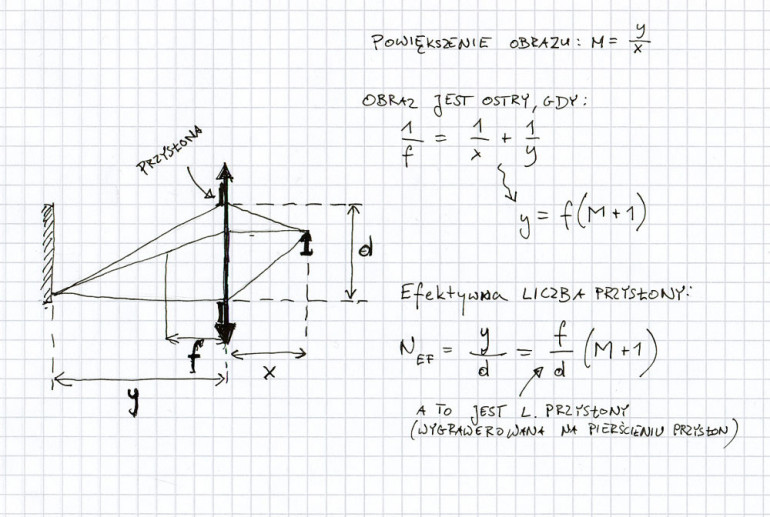 POWIĘKSZENIE OBRAZU: M = y/x
OBRAZ JEST OSTRY, GDY:
1/f = 1/x + 1/y
y = f(M+1)
PRZYSŁONA
d
f
x
y
Efektywna LICZBA PRZYSŁONY:
N_EF = y/d = f/d (M+1)
A TO JEST L. PRZYSŁONY
(WYGRAWEROWANA NA PIERŚCIENIU PRZYSŁON)